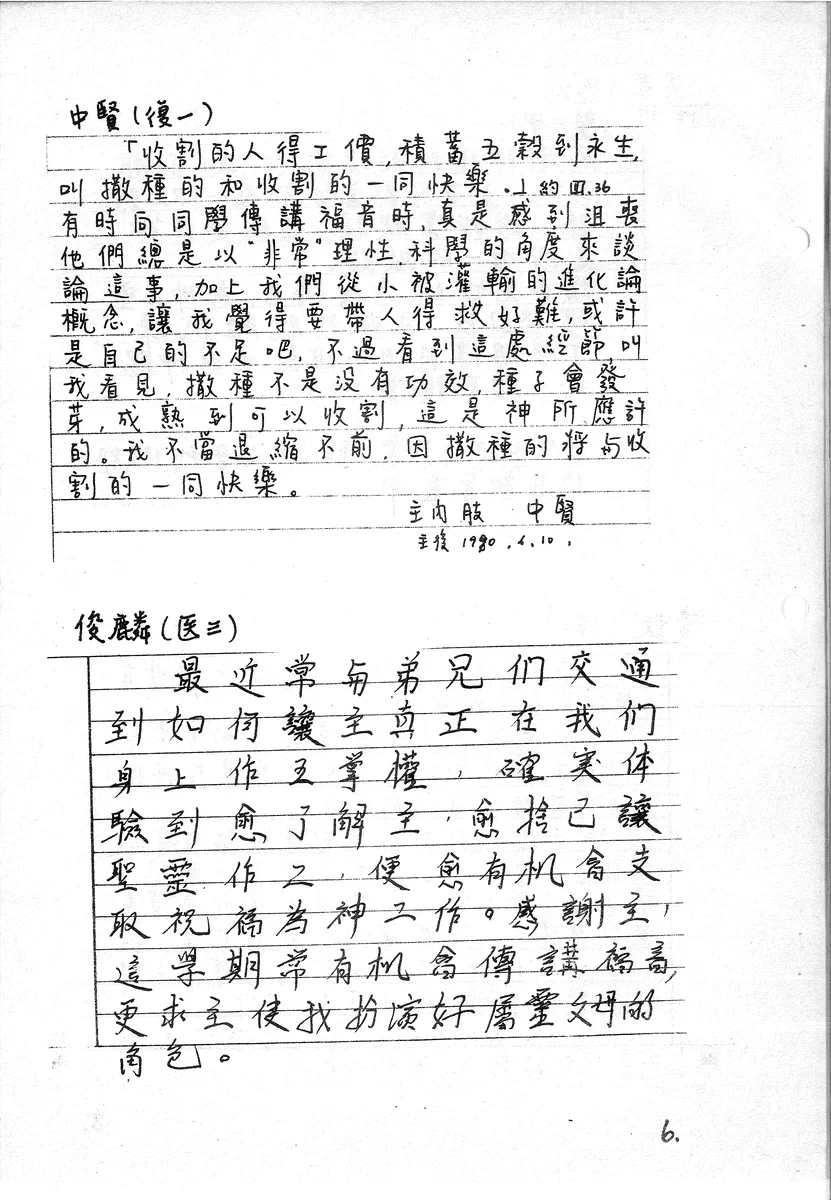 中賢(復一)
「收割的人得工價,積蓄五穀到永生,
叫撒種的和收割的一同快樂。」約Ⅳ.36
有時向同學傳講福音時,真是感到沮喪
他們總是以"非常"理性,科學的角度來談
論這事,加上我們從小被灌輸的進化論
概念,讓我覺得要帶人得救好難,或許
是自己的不足吧,不過看到這處經節,叫
我看見,撒種不是没有功效,種子會發
芽,成熟到可以收割,這是神所應許
的。我不當退縮不前,因撒種的將与收
割的一同快樂。
主內肢 中賢
主後1990.6.10.
俊麟(医三)
最近常与弟兄们交通
到如何讓主真正在我们
身上作王掌權,確实体
驗到愈了解主,愈捨己讓
聖靈作工,便愈有机會支
取祝福為神工作。感謝主,
這學期常有机會傳講福音,
更求主使我扮演好屬靈父母的
角色。
6.